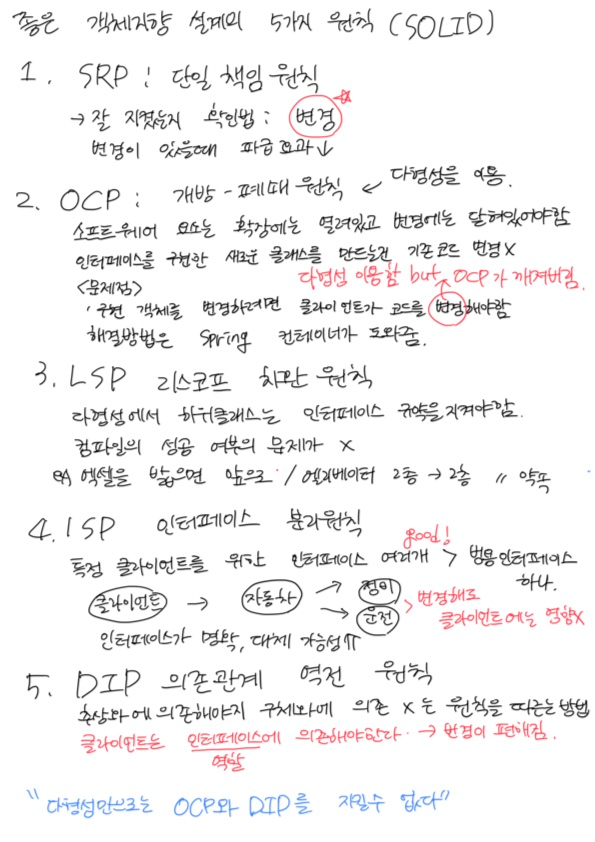 좋은 객체지향 설계의 5가지 원칙 (SOLID)
1. SRP : 단일 책임 원칙
→ 잘 지켰는지 확인법 : 변경
변경이 있을때 파급효과↓
2. OCP : 개방 - 폐쇄 원칙 ↙ 다형성을 이용.
소프트웨어 요소는 확장에는 열려있고 변경에는 닫혀있어야함
인터페이스를 구현한 새로운 클래스를 만드는건 기존코드 변경 X
다형성 이용함 but, OCP가 깨져버림.
<문제점>
· 구현 객체를 변경하려면 클라이언트가 코드를 변경해야함
해결방법은 Spring 컨테이너가 도와줌.
3. LSP 리스코프 치환 원칙
다형성에서 하위클래스는 인터페이스 규약을 지켜야함.
컴파일의 성공 여부의 문제가 X
ex) 엑셀을 밟으면 앞으로 / 엘리베이터 2층 → 2층 〃 약속
4. ISP 인터페이스 분리원칙
good!
특정 클라이언트를 위한 인터페이스 여러개 > 범용인터페이스
하나.
클라이언트 → 자동차 → 정비
→ 운전
> 변경해도
클라이언트에는 영향X
인터페이스가 명확, 대체 가능성⇈
5. DIP 의존관계 역전 원칙
추상화에 의존해야지 구체화에 의존 X는 원칙을 따르는 방법
클라이언트는 인터페이스에 의존해야한다. → 변경이 편해짐.
역할
"다형성만으로는 OCP와 DIP를 지킬수 없다"